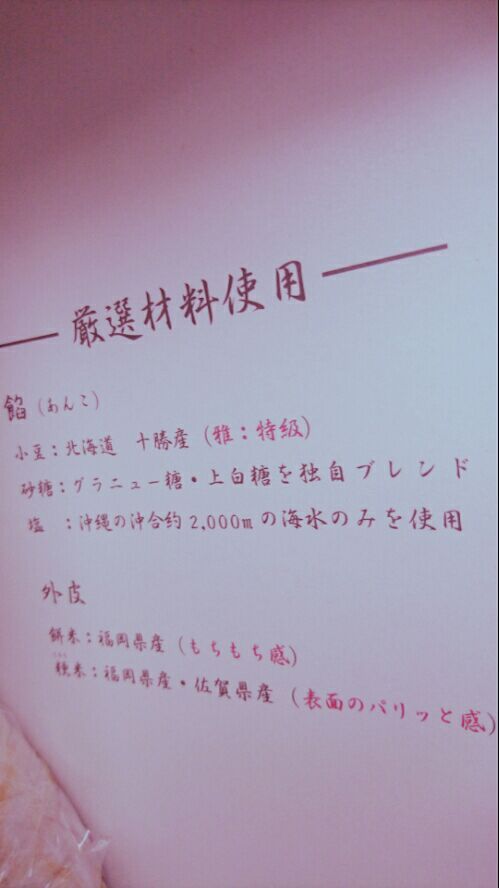 厳選材料使用
餡(あんこ)
小豆:北海道 十勝産(雅:特級)
砂糖:グラニュー糖・上白糖を独自ブレンド
塩 :沖縄の沖合約2,000mの海水のみを使用
外皮
餅米:福岡県産(もちもち感)
粳米:福岡県産・佐賀県産(表面のパリッと感)